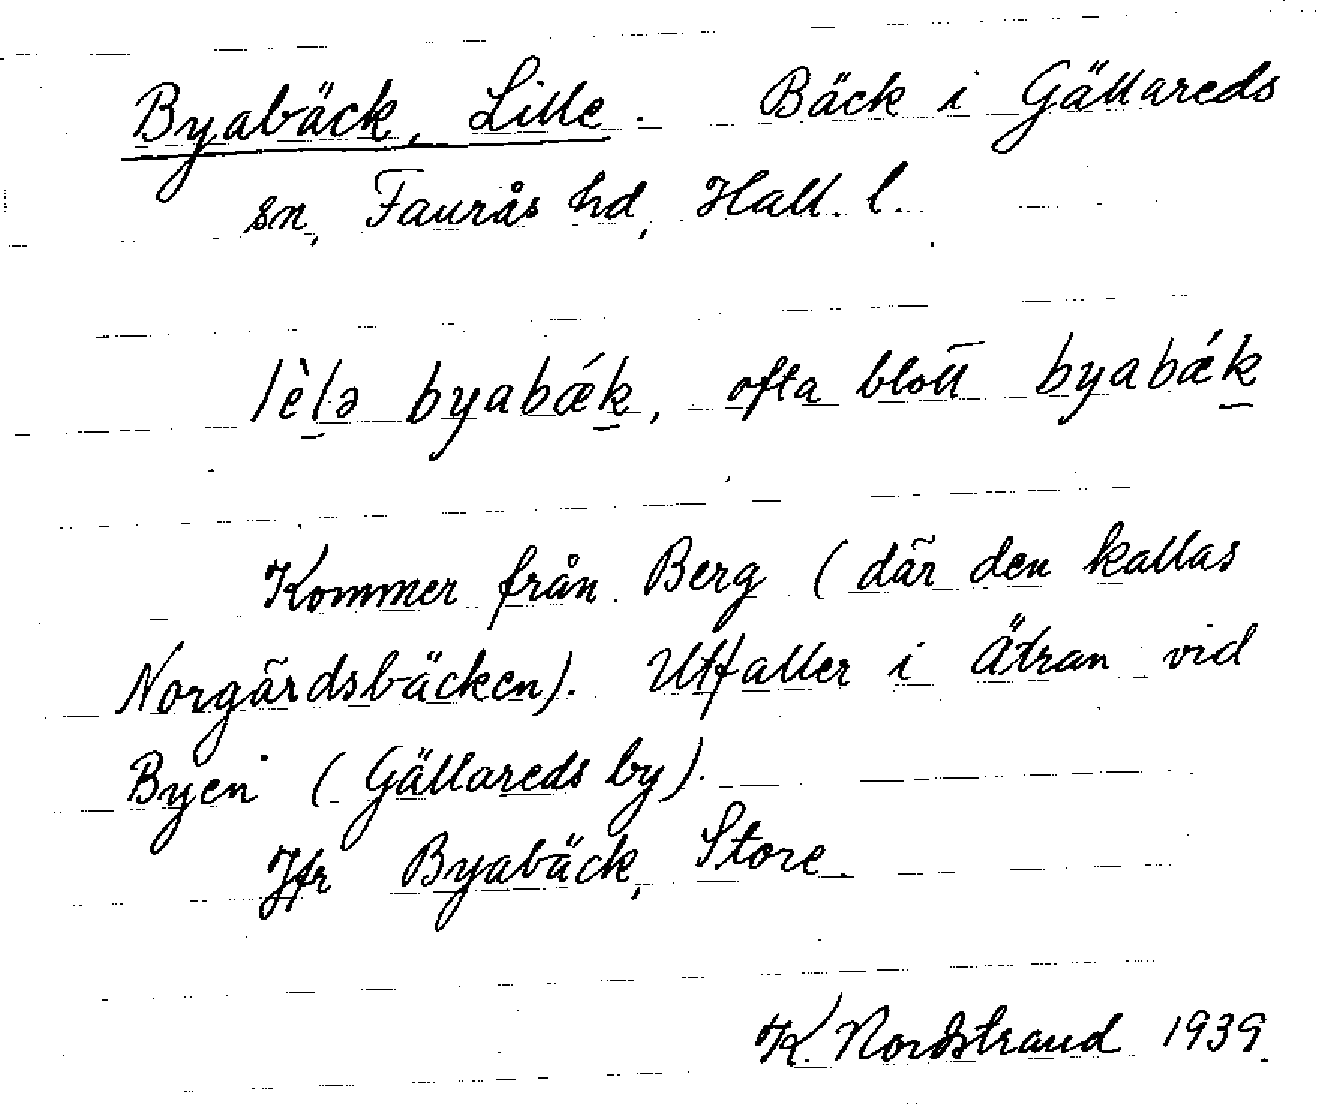 Byabäck, Lille. Bäck i Gällareds
sn, Faurås hd, Hall. l.
lèl̠ə byabǽk̠, ofta blott byabǽk̠
Kommer från Berg (där den kallas
Norgärdsbäcken). Utfaller i Ätran vid
Byen (Gällareds by).
Jfr Byabäck, Store.
K. Nordstrand 1939.